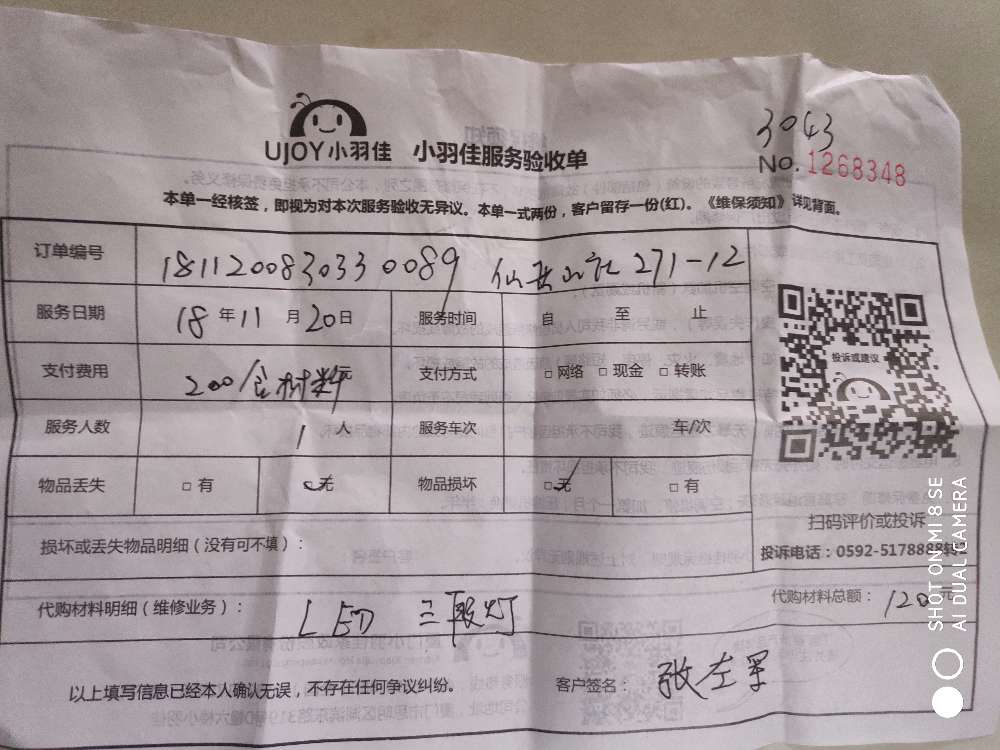 3043
UJOY小羽佳 小羽佳服务验收单
No. 1268348
本单一经核签，即视为对本次服务验收无异议。本单一式两份，客户留存一份(红)。《维保须知》详见背面。
订单编号 181120083033 0089 271-12
服务日期 18年11月20日 服务时间 自 至 止
支付费用 200/含材料 元 支付方式 □网络 □现金 □转账
服务人数 1人 服务车次 车/次
物品丢失 □有 □无 物品损坏 □无 □有
投诉或建议
扫码评价或投诉
损坏或丢失物品明细（没有可不填）：
投诉电话：0592-5178888转2
代购材料明细（维修业务）： LED 三段灯
代购材料总额： 120元
以上填写信息已经本人确认无误，不存在任何争议纠纷。
客户签名： 张左军
SHOT ON MI 8 SE
AI DUAL CAMERA